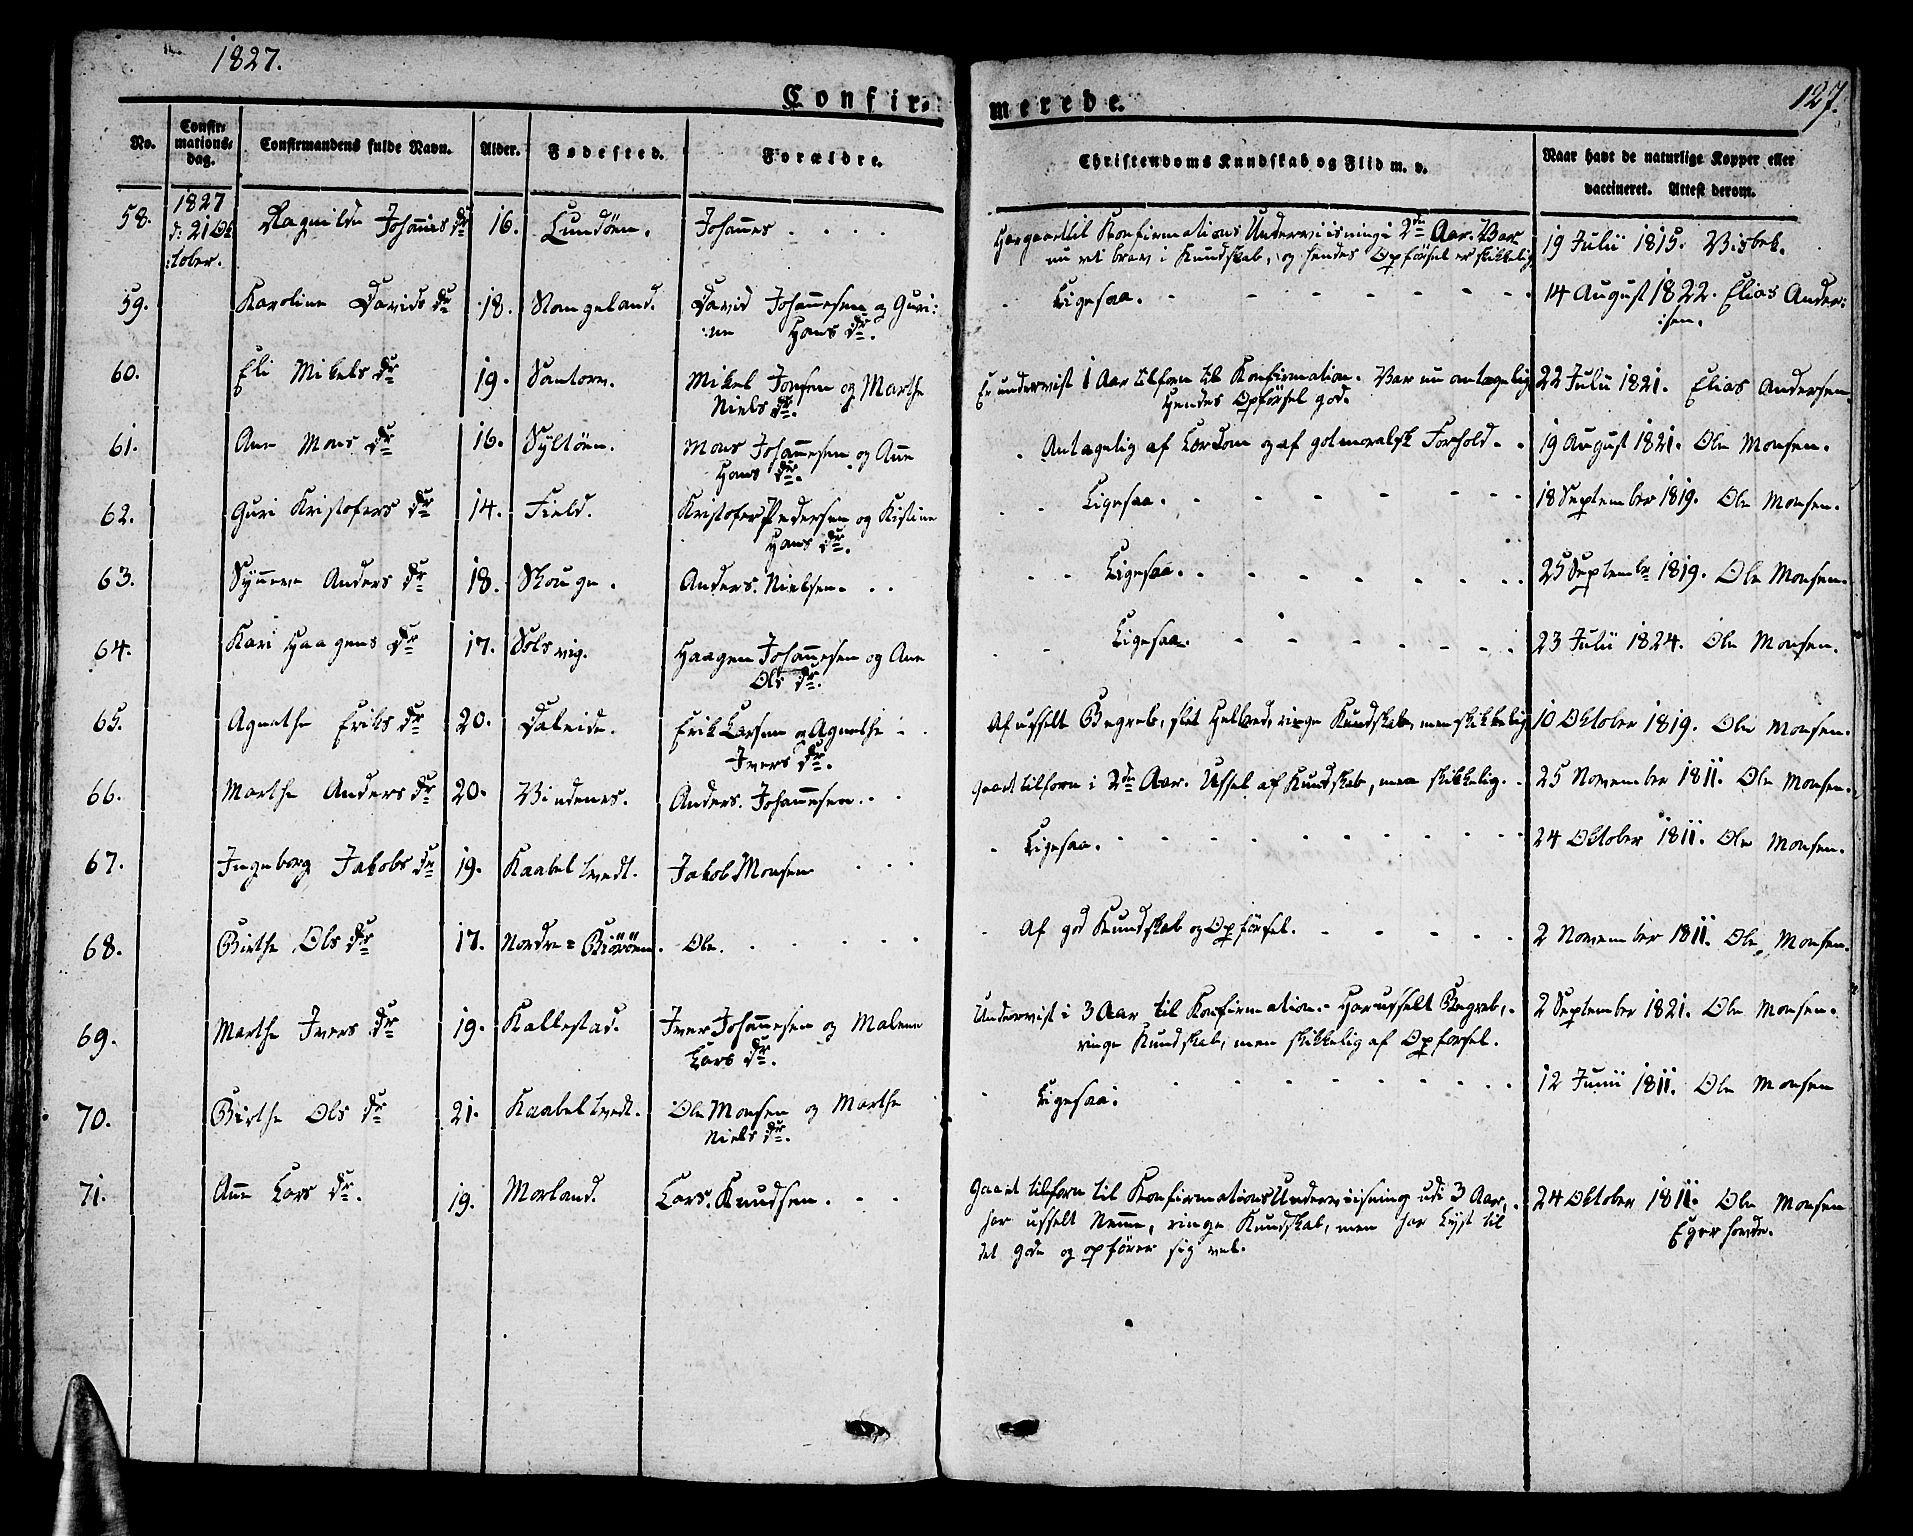 1827.
127.
Confir-
merede.
No.
Confir-
mations-
dag.
Confirmandens fulde Navn.
Alder.
Fødested.
Forældre.
Christendoms Kundskab og Flid m. v.
Naar havt de naturlige Kopper eller
vaccineret. Attest derom.
1827
d: 21 Ok
:tober.
58. Ragnilde Johannes Dr 16. Lundöen. Johannes . . . .
Har gaaet til Konfirmations Underviisning i 2de Aar. Var
nu ret brav i Kundskab, og hendes Opförsel er skikkelig
19 Julii 1815. Visbek.
59. Karoline Davids Dr 18. Stangeland. David Johannesen og Guri:
:ne Hans Dr.
Ligesaa. 14 August 1822. Elias Ander:
:sen.
60. Eli Mikels Dr 19. Santorv. Mikel Jonsen og Marthe
Niels Dr.
Er underviist 1 Aar tilforn til Konfirmation. Var nu antagelig
Hendes Opförsel god.
22 Julii 1821. Elias Andersen.
61. Ane Mons Dr 16. Syltöen. Mons Johannesen og Anne
Hans Dr.
Antagelig af Lærdom og af got moralsk Forhold - - 19 August 1821. Ole Monsen.
62. Guri Kristofers Dr 14. Field. Kristofer Pedersen og Kistine
Hans Dr.
Ligesaa. 18 September 1819. Ole Monsen.
63. Synneve Anders Dr 18. Skouge. Anders Nielsen. . .
Ligesaa. 25 Septembr 1819. Ole Monsen.
64. Kari Haagens Dr 17. Solsvig. Haagen Johannesen og Ane
Ols Dr.
Ligesaa. 23 Julii 1824. Ole Monsen.
65. Agnethe Eriks Dr 20. Daleide. Erik Larsen og Agnethe
Ivers Dr.
Af usselt Begreb, slet Helbred, ringe Kundskab, men skikkelig 10 Oktober 1819. Ole Monsen.
66. Marthe Anders Dr 20. Vindenes. Anders Johannesen. . .
gaaet tilforn i 2de Aar. Ussel af Kundskab, men skikkelig. 25 November 1811. Ole Monsen.
67. Ingeborg Jakobs Dr 19. Kaabeltvedt. Jakob Monsen
Ligesaa. 24 Oktober 1811. Ole Monsen.
68. Birthe Ols Dr 17. Nordre = Biöröen. Ole.
Af god Kundskab og Opförsel. 2 November 1811. Ole Monsen.
69. Marthe Ivers Dr 19. Kallestad. Iver Johannesen og Malene
Lars Dr.
Underviist i 3 Aar til Konfirmation. Har usselt Begreb,
ringe Kundskab, men skikkelig af Opförsel.
2 September 1821. Ole Monsen.
70. Birthe Ols Dr 21. Kaabeltvedt. Ole Monsen og Marthe
Niels Dr.
Ligesaa. 12 Junii 1811. Ole Monsen
71. Ane Lars Dr. 19. Morland. Lars Knudsen. - -
Gaaet tilforn til Konfirmations Underviisning udi 3 Aar,
har usselt Nemme, ringe Kundskab, men har Lyst til
det gode og opförer sig vel.
24 Oktober 1811. Ole Monsen
Egerhovde.